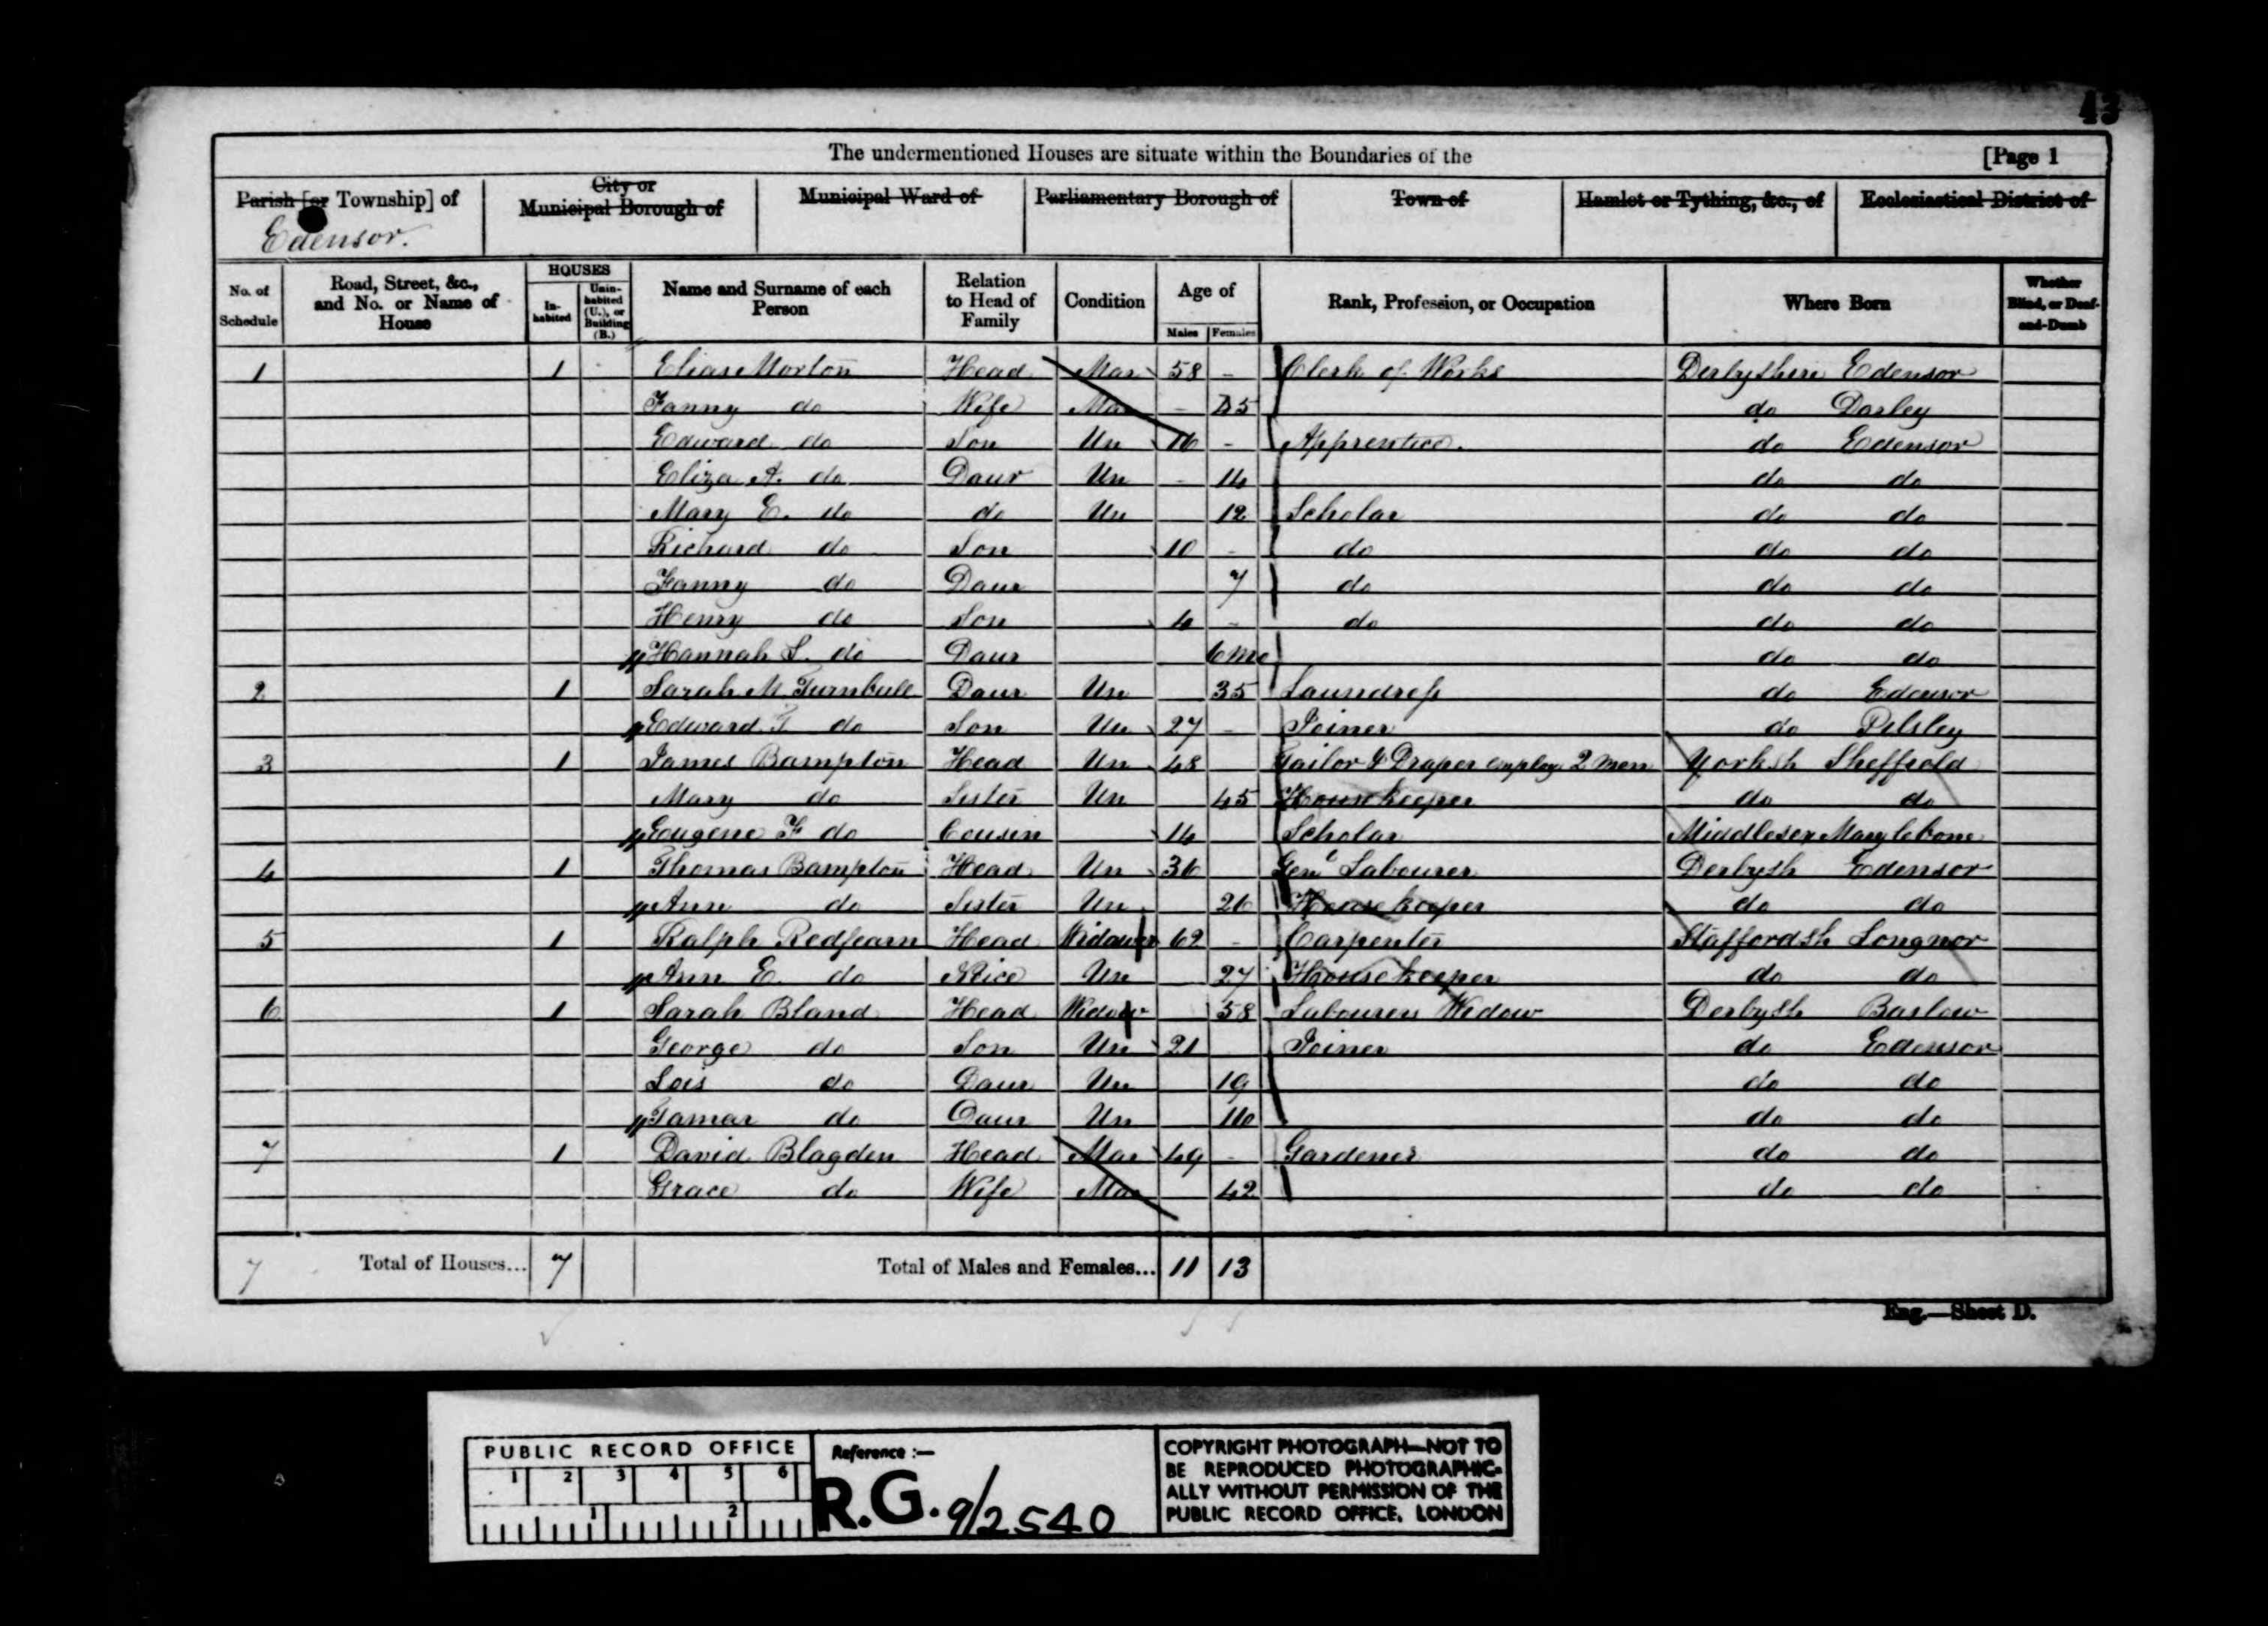 43
The undermentioned Houses are situate within the Boundaries of the [Page 1
Parish [or Township] of City or Municipal Borough of Municipal Ward of Parliamentary Borough of Town of Hamlet or Tything, &c., of Ecclesiastical District of
Edensor.
No. of Schedule Road, Street, &c., and No. or Name of House HOUSES Inhabited Uninhabited (U.), or Building (B.) Name and Surname of each Person Relation to Head of Family Condition Age of Males Females Rank, Profession, or Occupation Where Born Whether Blind, or Deaf-and-Dumb
1 1 Elias Morton Head Mar 58 - Clerk of Works Derbyshire Edensor
Fanny do Wife Mar - do Darley
Edward do Son Un 16 - Apprentice. do Edensor
Eliza A. do Daur Un - 14 do do
Mary E. do do Un 12 Scholar do do
Richard do Son 10 - do do do
Fanny do Daur 7 do do do
Henry do Son 4 - do do do
Hannah S. do Daur 6 mo do do
2 1 Sarah M Turnbull Daur Un 35 Laundress do Edensor
Edward T do Son Un 27 - Joiner do Pilsley
3 1 James Bampton Head Un 48 Tailor & Draper employ 2 men Yorksh Sheffield
Mary do Sister Un 45 Housekeeper do do
Eugene F do Cousin 14 Scholar Middlesex Marylebone
4 1 Thomas Bampton Head Un 36 Genl Labourer Derbysh Edensor
Ann do Sister Un 26 Housekeeper do do
5 1 Ralph Redfearn Head Widower 62 - Carpenter Staffordsh Longnor
Ann E. do Niece Un 27 Housekeeper do do
6 1 Sarah Bland Head Widow 58 Labourers Widow Derbysh Baslow
George do Son Un 21 Joiner do Edensor
Lois do Daur Un 19 do do
Tamar do Daur Un 16 do do
7 1 David Blagden Head Mar 49 - Gardener do do
Grace do Wife Mar 42 do do
7 Total of Houses... 7 Total of Males and Females... 11 13
Eng.—Sheet D.
PUBLIC RECORD OFFICE
1 2 3 4 5 6
1 2
Reference :—
R.G. 9/2540
COPYRIGHT PHOTOGRAPH—NOT TO
BE REPRODUCED PHOTOGRAPHIC-
ALLY WITHOUT PERMISSION OF THE
PUBLIC RECORD OFFICE, LONDON